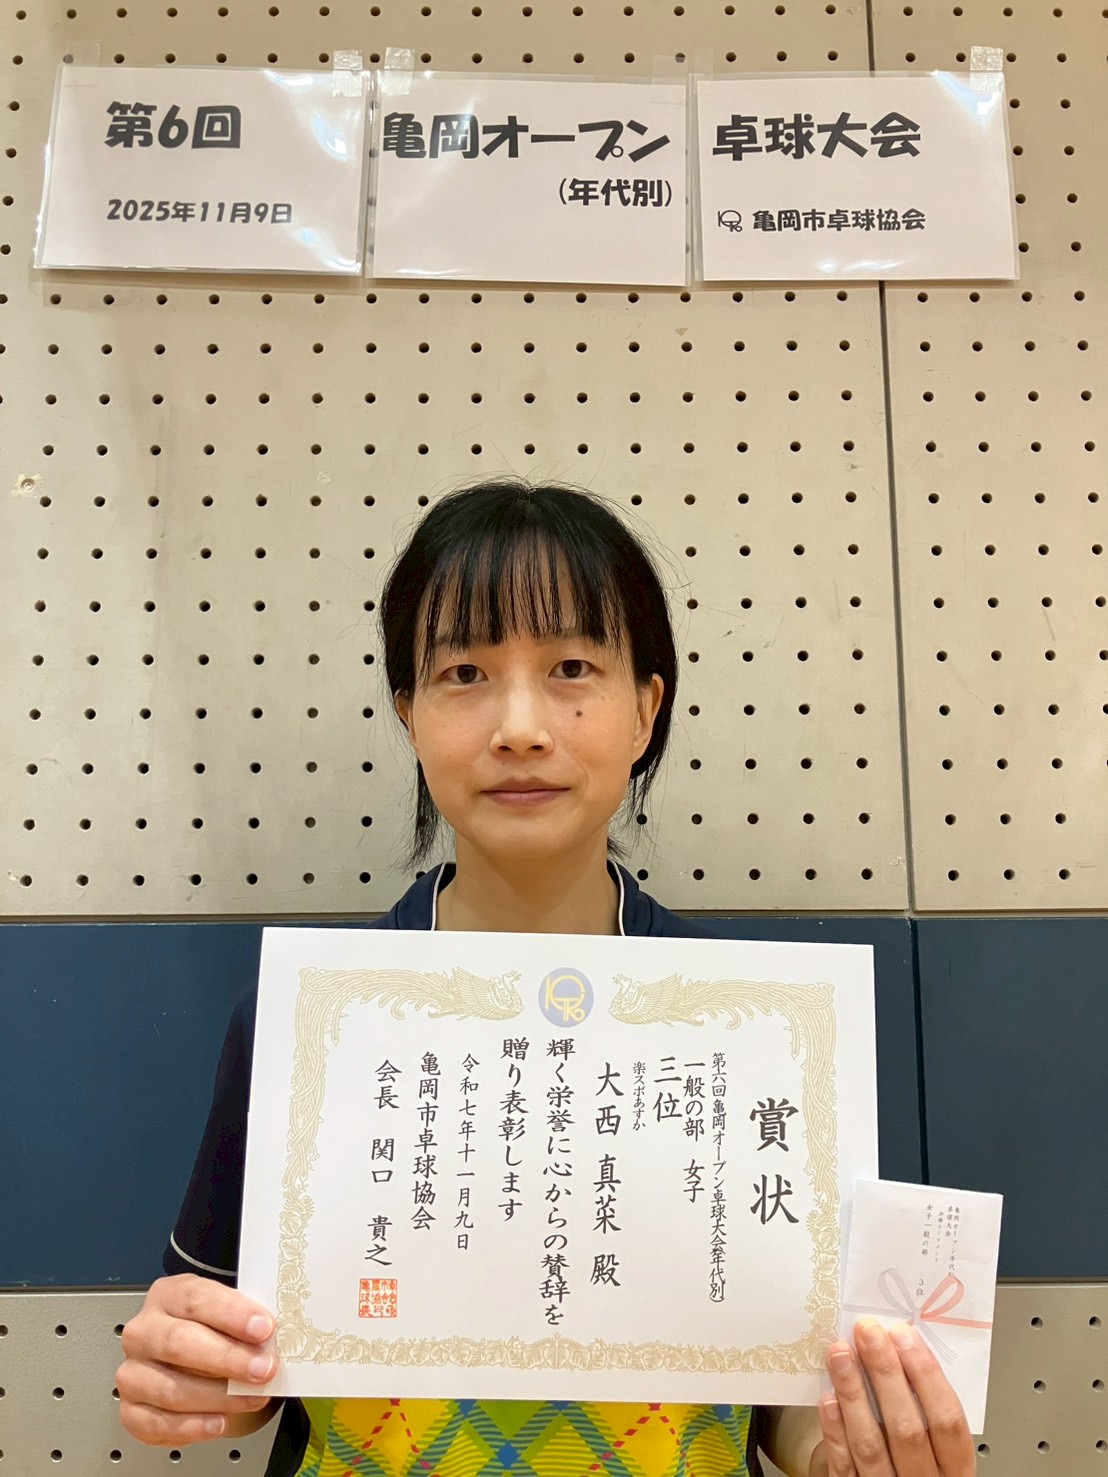 第6回
2025年11月9日
亀岡オープン
(年代別)
卓球大会
亀岡市卓球協会
賞状
第六回亀岡オープン卓球大会(年代別)
一般の部 女子
三位
楽スポあすか
大西 真菜 殿
輝く栄誉に心からの賛辞を
贈り表彰します
令和七年十一月九日
亀岡市卓球協会
会長 関口 貴之
亀岡オープン年代別
卓球大会
女子一般の部
3位